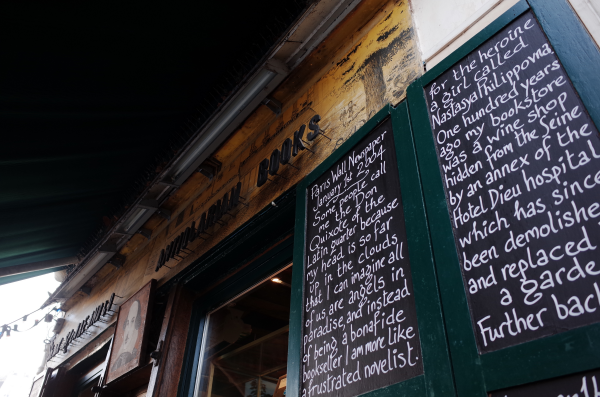 ANTIQUARIAN BOOKS
Paris Wall Newspaper
January 1st 2004
Some people call
me the Don
Quixote of the
Latin Quarter because
my head is so far
up in the clouds
that I can imagine all
of us are angels in
paradise, and instead
of being a bonafide
bookseller I am more like
a frustrated novelist.
for the heroine
a girl called
Nastasya Philippovna
One hundred years
ago my bookstore
was a wine shop
hidden from the Seine
by an annex of the
Hotel Dieu hospital
which has since
been demolished
and replaced
a garde
Further back